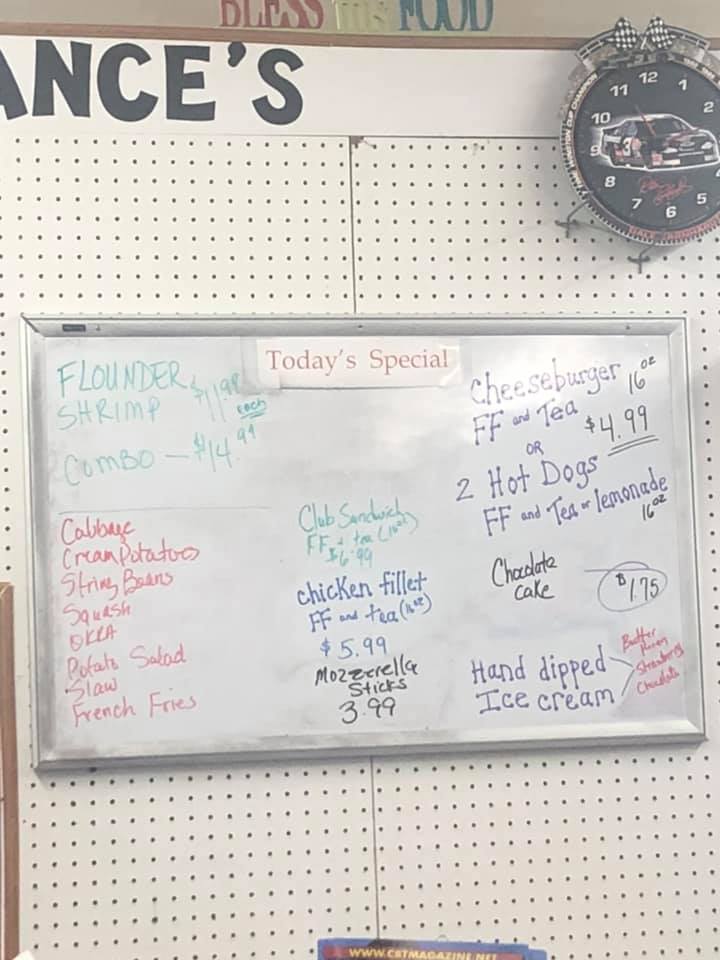 BLESS FOOD
ANCE'S
12
1
2
5
6
7
8
9
10
11
3
Today's Special
FLOUNDER
SHRIMP
each
COMBO — $14.99
Cabbage
Cream Potatoes
String Beans
Squash
OKRA
Potato Salad
Slaw
French Fries
Club Sandwich
FF + tea (16oz)
$6.99
chicken fillet
FF and tea (16oz)
$5.99
Mozzerella
Sticks
3.99
Cheeseburger
FF and Tea 16oz
$4.99
OR
2 Hot Dogs
FF and Tea or lemonade
16oz
Chocolate
cake
$1.75
Hand dipped
Ice cream
Butter
Pecan
Strawberry
Chocolate
WWW.CBTMAGAZINE.NET